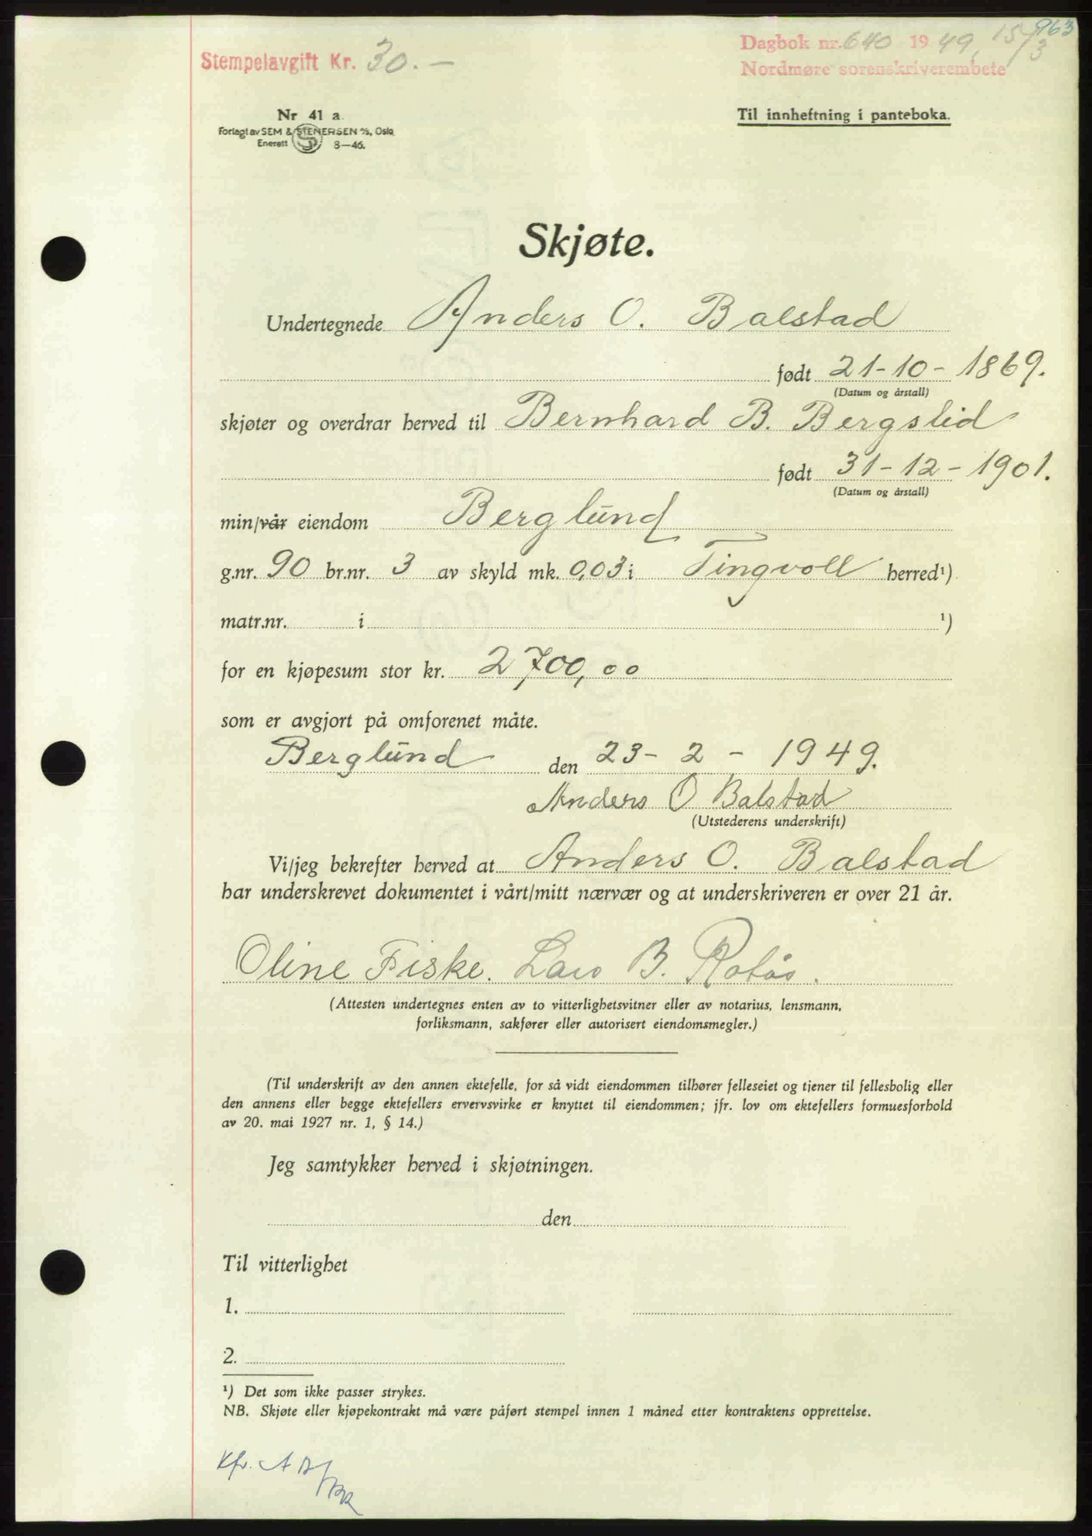 963
Dagbok nr. 640 1949, 15/3
Stempelavgift Kr. 30.—
Nordmøre sorenskriverembete
Nr 41 a
Til innheftning i panteboka.
Forlagt av SEM & STENERSEN A/S, Oslo
Enerett 8-46.
Skjøte.
Undertegnede Anders O. Balstad
født 21-10-1869.
(Datum og årstall)
skjøter og overdrar herved til Bernhard B. Bergslid
født 31-12-1901.
(Datum og årstall)
min/vår eiendom Berglund
g.nr. 90 br.nr. 3 av skyld mk. 0,03 i Tingvoll herred¹)
matr.nr. i ¹)
for en kjøpesum stor kr. 2700,00
som er avgjort på omforenet måte.
Berglund den 23-2-1949.
Anders O Balstad
(Utstederens underskrift)
Vi/jeg bekrefter herved at Anders O. Balstad
har underskrevet dokumentet i vårt/mitt nærvær og at underskriveren er over 21 år.
Oline Fiske. Lars B. Rotås.
(Attesten undertegnes enten av to vitterlighetsvitner eller av notarius, lensmann,
forliksmann, sakfører eller autorisert eiendomsmegler.)
(Til underskrift av den annen ektefelle, for så vidt eiendommen tilhører felleseiet og tjener til fellesbolig eller
den annens eller begge ektefellers ervervsvirke er knyttet til eiendommen; jfr. lov om ektefellers formuesforhold
av 20. mai 1927 nr. 1, § 14.)
Jeg samtykker herved i skjøtningen.
den
Til vitterlighet
1.
2.
¹) Det som ikke passer strykes.
NB. Skjøte eller kjøpekontrakt må være påført stempel innen 1 måned etter kontraktens opprettelse.
Kfr.